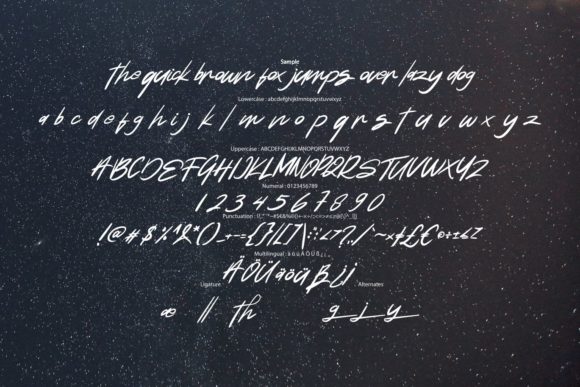 Sample
the quick brown fox jumps over lazy dog
Lowercase : abcdefghijklmnopqrstuvwxyz
a b c d e f g h i j k l m n o p q r s t u v w x y z
Uppercase : ABCDEFGHIJKLMNOPQRSTUVWXYZ
ABCDEFGHIJKLMNOPQRSTUVWXYZ
Numeral : 0123456789
1 2 3 4 5 6 7 8 9 0
Punctuation :
Multilingual : ä ö ü Ä Ö Ü ß ¿ ¡
ÄÖÜäöüß¿¡
Ligature Alternates
æ ll th g j y